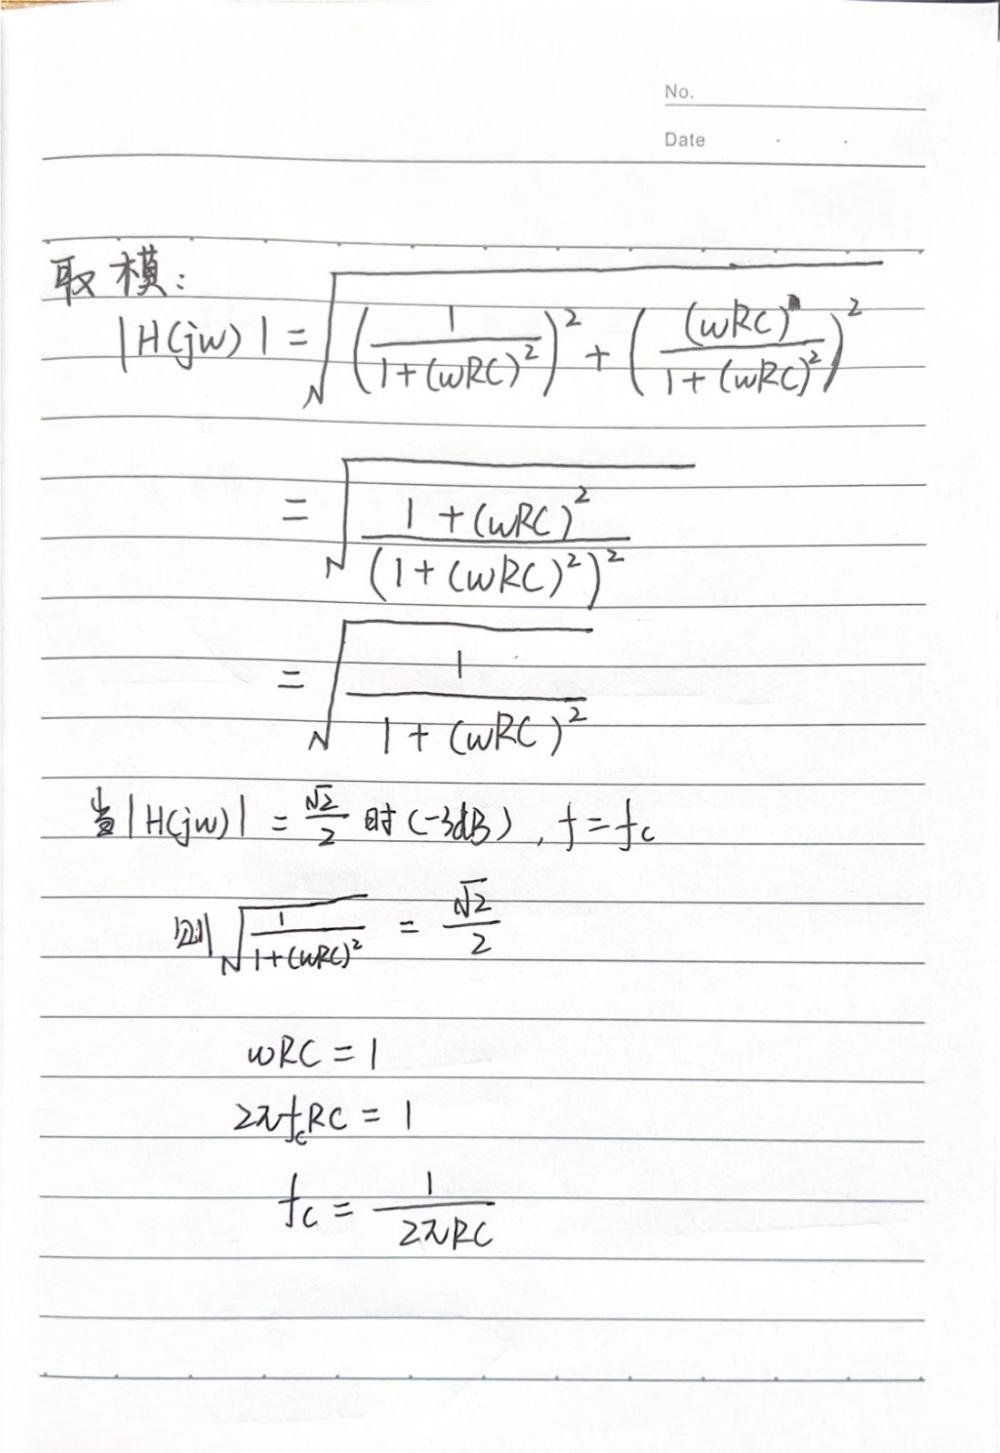 No.
Date
取模:
|H(jw)| = √((1/(1+(wRC)²))² + ((wRC)/(1+(wRC)²))²)
= √((1+(wRC)²)/(1+(wRC)²)²)
= √(1/(1+(wRC)²))
当|H(jw)| = √2/2 时(-3dB), f=fc
则√(1/(1+(wRC)²)) = √2/2
wRC = 1
2πfcRC = 1
fc = 1/(2πRC)